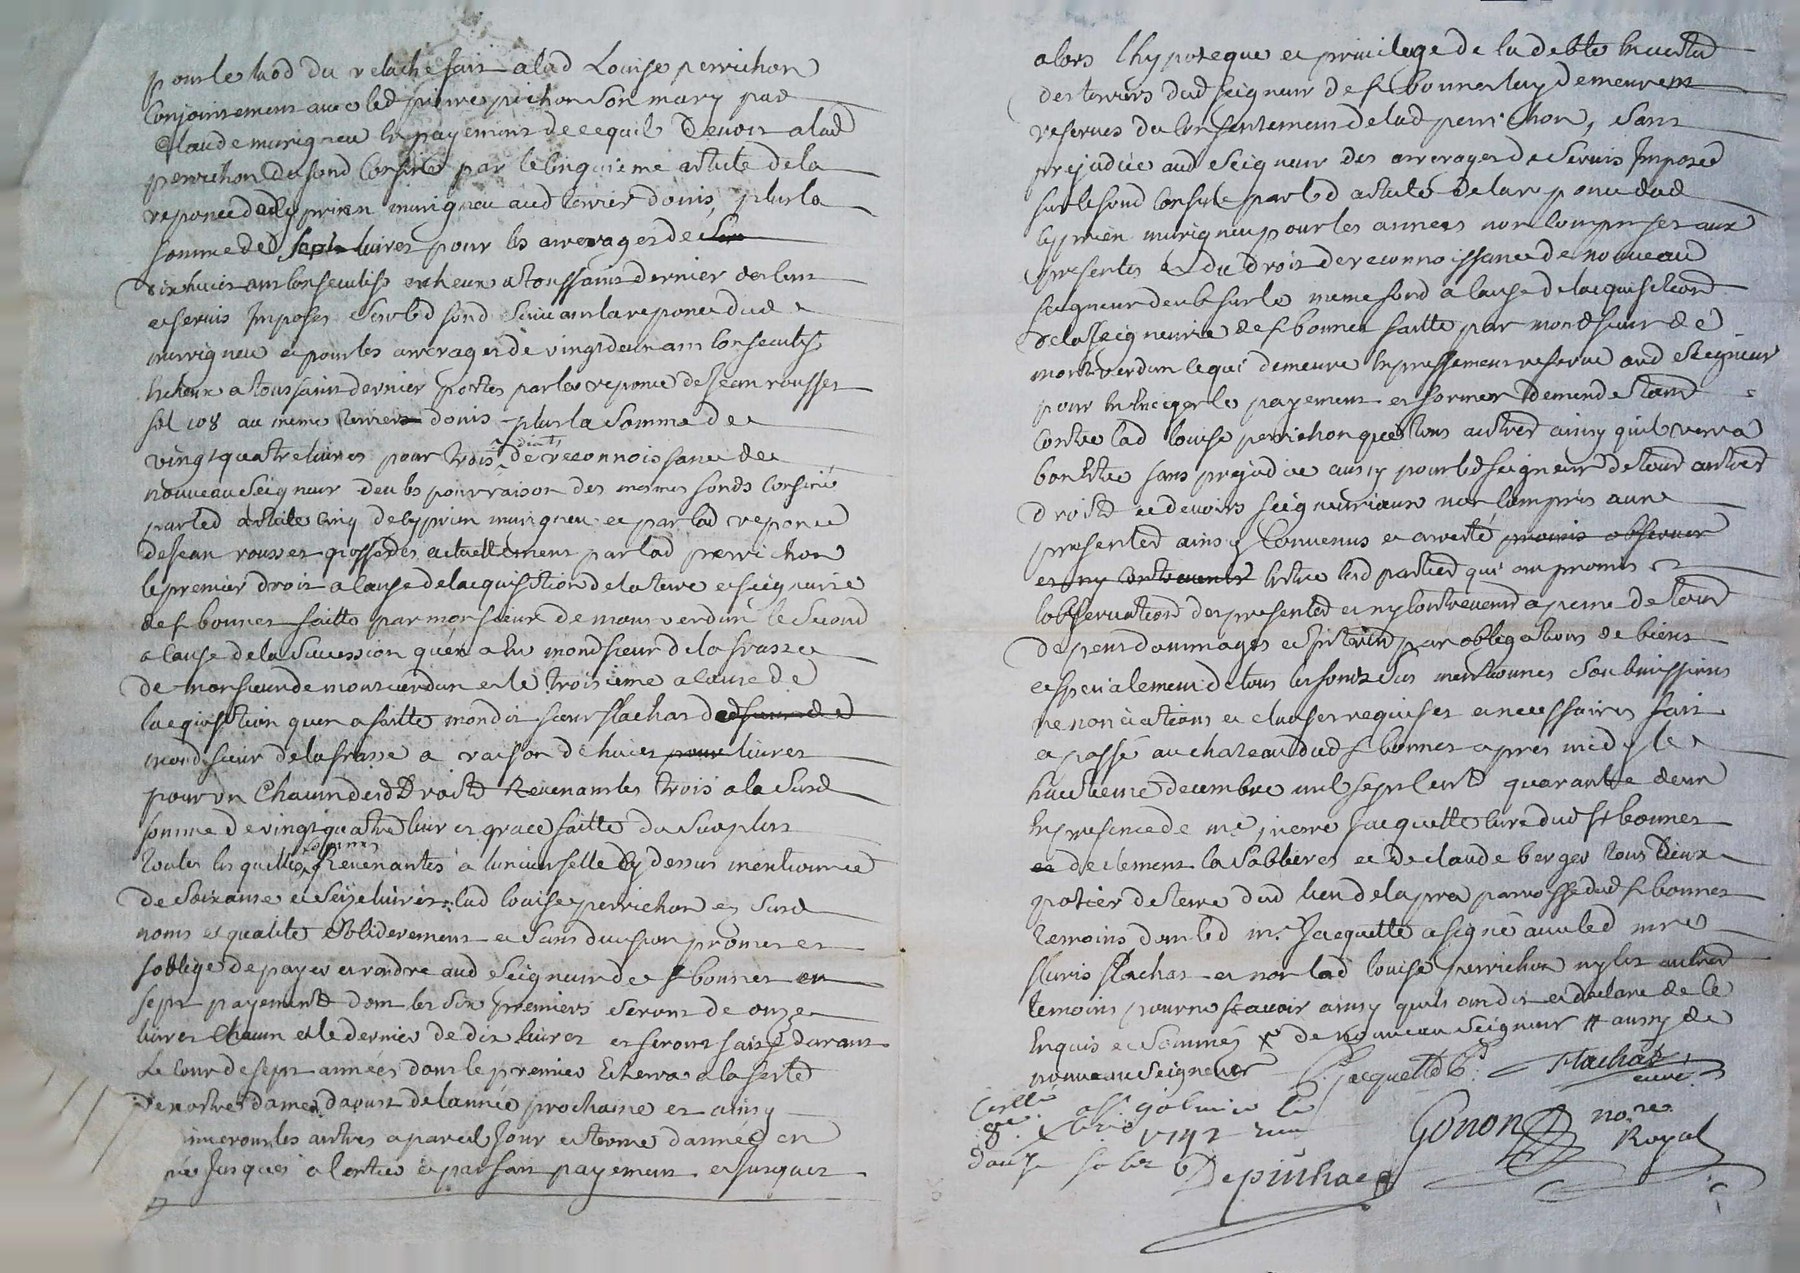 pour le laod du relaché fait a lad Louise perrichon
Conjointement avec led pierre pichon son mary par
Claude marigneu en payement de ce quil devoit a lad
perrichon du fond Confiné par le Cinquieme article de la
reponce de Cyprien marigneu aud terrier donis, plus la
somme de sept livres pour les arrerages de
dix huict ans Consecutifs echeux a toussaint dernier de Cens
et servis Imposés sur led fond suivant la reponce dud
marigneu et pour les arrerages de vingt deux ans Consecutifs
echeux a toussaint dernier portés par la reponce de Jean rousset
fol 108 au meme terrier donis plus la somme de
vingt quatre livres pour trois droits de reconnoissance de
nouveau Seigneur deubs pour raison des memes fonds Confiné
par led article Cinq de Cyprien marigneu et par lad reponce
de Jean rousset possedés actuellement par lad perrichon
le premier droit a Cause de lacquisition de la terre et seigneurie
de st bonnet faitte par monsieur de mont verdun le second
a Cause de la sucession quen a eu mondsieur de la frasse
de monsieur de mont verdun et le troisieme a Cause de
lacquisition quen a faitte mondit sieur flachat dud sieur de
mondsieur de la frasse a raison de huict pour livres
pour un Chacun desd Droits Revenants les trois a la susd
somme de vingt quatre livres grace faitte du surplus
toutes lesquelles sommes Revenantes a luniverselle Cy dessus mentionnée
de soixante et seize livres lad louise perrichon es susd
noms et qualité solidairement et sans division promet et
soblige de payer et rendre aud Seigneur de st bonnet en
sept payements dont les six premiers seront de onze
livres Chacun et le dernier de dix livres et seront faits durant
Le Cour de sept années dont le premier Echerra a la feste
De nostre dame daoust de lannée prochaine et ainsy
les autres a pareil Jour et terme dannée en
Jusques a lentier et parfait payement et jusques
alors lhypoteque et privilege de la debte en vertud
des terriers dud seigneur de st bonnet luy demeurent
reservés du Consentement de lad perrichon, sans
prejudice aud Seigneur des arrerages de servis Imposéd
sur le fond Confiné par led article de la reponce dud
Cyprien marigneu pour les années non Comprises aux
presentes et du droit de reconnoissance de nouveau
seigneur deub sur le meme fond a Cause de lacquisition
de la seigneurie de st bonnet faitte par mondsieur de
mont verdun lequel demeure Expressement reservé aud Seigneur
pour en Exiger le payement et former demande tant
Contre lad louise perrichon que tous autres ainsy quil verra
bon Estre sans prejudice aussy pour led seigneur de tous autres
droits et devoirs seigneuriaux non Compris aux
presentes ainsy Convenus et arresté promis observer
et ny Contrevenir Entre lesd parties qui ont promis
lobservation des presentes et ny Contrevenir a peine de tous
depens dommages et Interets par obligations de biens
et specialement de tous les fonds sus mentionnés soubmissions
renonciations et clauses requises et necessaires fait
et passé au chateau dud st bonnet apres midy le
huictieme decembre mil sept cents quarante deux
En presence de me pierre Jacquette Curé dud st bonnet
et de clement la sabliere et de claude berger tous deux
potier de terre dud lieu de la pra parroisse dud st bonnet
temoins dont led mr Jacquette a signé avec led mre
flachat et non lad louise perrichon ny les autres
temoins pour ne scavoir ainsy quils ont dit et declaré de ce
Enquis et sommés x de nouveau Seigneur # aussy de
nouveau seigneur Jacquette C. Flachat
Gonon nore
Royal
Con.llé a st galmier le
8e xbre 1742 Reçu
douze sols
Depinhac